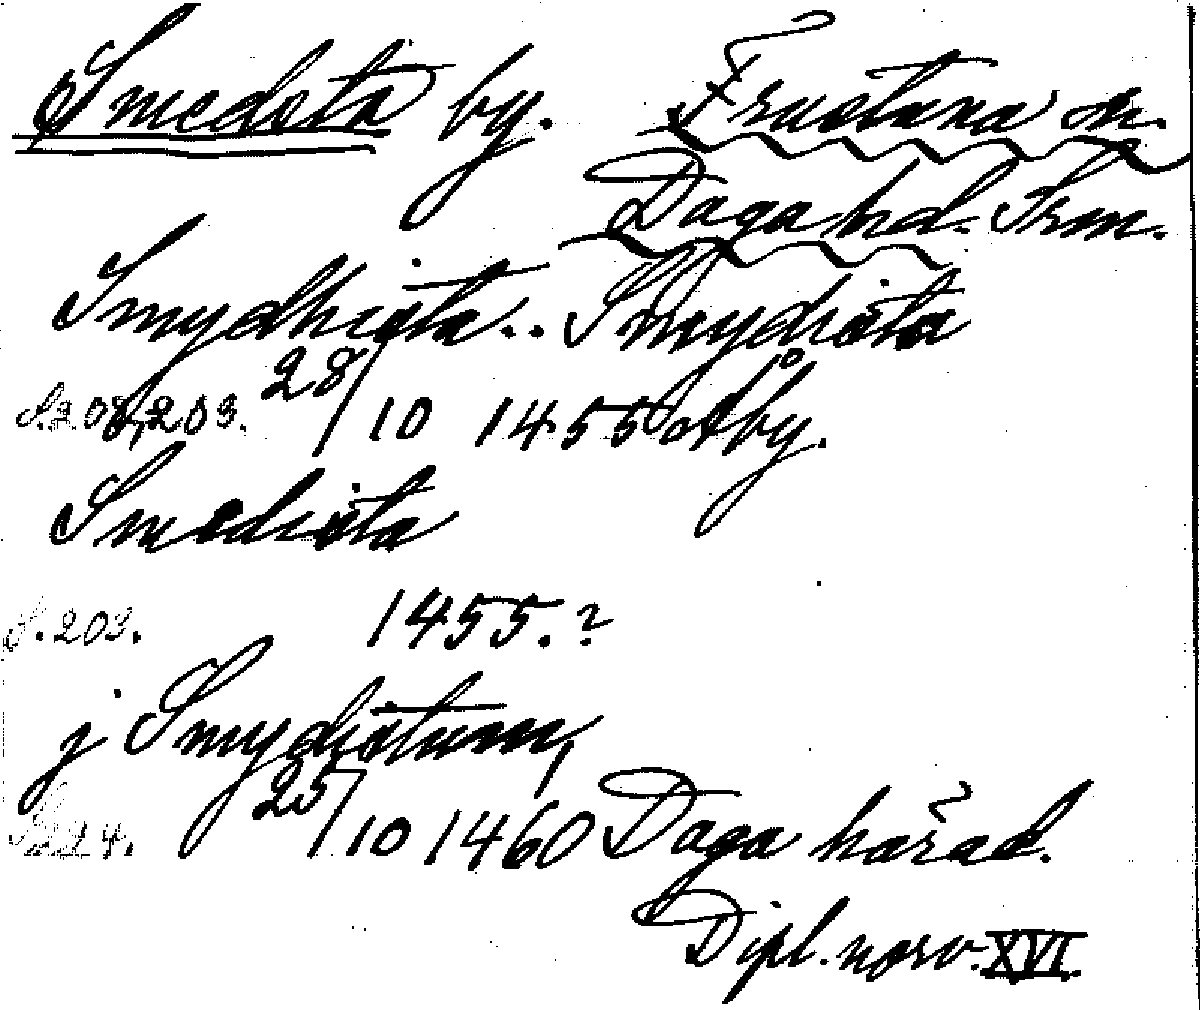 Smedsta by. Frustuna sn.
Daga hd. Srm.
Smydhista.. Smydista
S. 208, 203. 28/10 1455 Åby.
Smedista
S. 203. 1455.?
j Smydistum,
S. 224. 25/10 1460 Daga härad.
Dipl. norv. XVI.